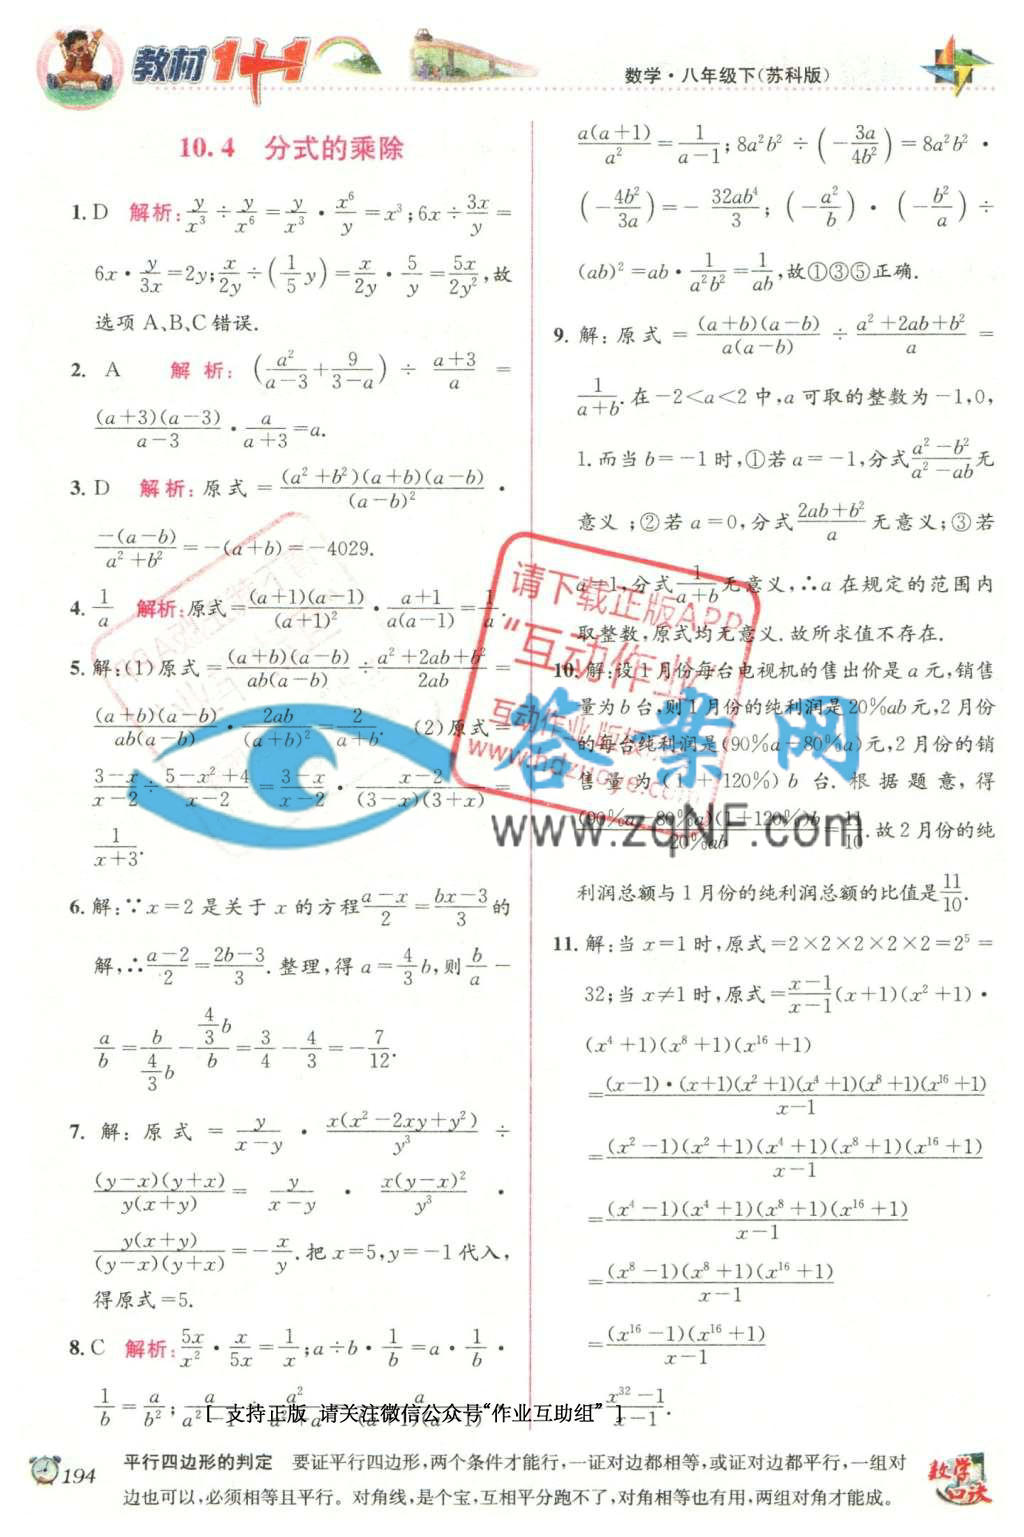 教材1+1
数学·八年级下(苏科版)
10.4 分式的乘除
1. D 解析: y/x³ ÷ y/x⁶ = y/x³ · x⁶/y = x³; 6x ÷ 3x/y =
6x · y/3x = 2y; x/2y ÷ (1/5 y) = x/2y · 5/y = 5x/2y², 故
选项 A、B、C 错误.
2. A 解析: (a²/(a-3) + 9/(3-a)) ÷ (a+3)/a =
(a+3)(a-3)/(a-3) · a/(a+3) = a.
3. D 解析: 原式 = (a²+b²)(a+b)(a-b)/(a-b)² ·
-(a-b)/(a²+b²) = -(a+b) = -4029.
4. 1/a 解析: 原式 = (a+1)(a-1)/(a+1)² · (a+1)/a(a-1) = 1/a.
5. 解:(1)原式 = (a+b)(a-b)/ab(a-b) ÷ (a²+2ab+b²)/2ab =
(a+b)(a-b)/ab(a-b) · 2ab/(a+b)² = 2/(a+b). (2)原式 =
(3-x)/(x-2) ÷ (5-x²+4)/(x-2) = (3-x)/(x-2) · (x-2)/(3-x)(3+x) =
1/(x+3).
6. 解:∵x=2 是关于 x 的方程 (a-x)/2 = (bx-3)/3 的
解,∴(a-2)/2 = (2b-3)/3. 整理,得 a = 4/3 b,则 b/a -
a/b = b/(4/3 b) - (4/3 b)/b = 3/4 - 4/3 = -7/12.
7. 解: 原式 = y/(x-y) · x(x²-2xy+y²)/y³ ÷
(y-x)(y+x)/y(x+y) = y/(x-y) · x(y-x)²/y³ ·
y(x+y)/(y-x)(y+x) = -x/y. 把 x=5,y=-1 代入,
得原式=5.
8. C 解析: 5x/x² · x/5x = 1/x; a÷b · 1/b = a · 1/b ·
1/b = a/b²;
[ 支持正版 请关注微信公众号“作业互助组” ]
a(a+1)/a² = 1/(a-1); 8a²b² ÷ (-3a/4b²) = 8a²b² ·
(-4b²/3a) = -32ab⁴/3; (-a²/b) · (-b²/a) ÷
(ab)² = ab · 1/a²b² = 1/ab, 故①③⑤正确.
9. 解: 原式 = (a+b)(a-b)/a(a-b) ÷ (a²+2ab+b²)/a =
1/(a+b). 在 -2<a<2 中,a 可取的整数为 -1,0,
1. 而当 b=-1 时,①若 a=-1,分式 (a²-b²)/(a²-ab) 无
意义;②若 a=0,分式 (2ab+b²)/a 无意义;③若
a=1,分式 1/(a+b) 无意义,∴a 在规定的范围内
取整数,原式均无意义.故所求值不存在.
10. 解:设 1 月份每台电视机的售出价是 a 元,销售
量为 b 台,则 1 月份的纯利润是 20%ab 元,2 月份
的每台纯利润是(90%a-80%a)元,2 月份的销
售量为(1+120%)b 台. 根据题意,得
(90%a-80%a)(1+120%)b/20%ab = 11/10. 故 2 月份的纯
利润总额与 1 月份的纯利润总额的比值是 11/10.
11. 解:当 x=1 时,原式=2×2×2×2×2=2⁵=
32;当 x≠1 时,原式 = (x-1)/(x-1) (x+1)(x²+1)·
(x⁴+1)(x⁸+1)(x¹⁶+1)
= (x-1)·(x+1)(x²+1)(x⁴+1)(x⁸+1)(x¹⁶+1)/(x-1)
= (x²-1)(x²+1)(x⁴+1)(x⁸+1)(x¹⁶+1)/(x-1)
= (x⁴-1)(x⁴+1)(x⁸+1)(x¹⁶+1)/(x-1)
= (x⁸-1)(x⁸+1)(x¹⁶+1)/(x-1)
= (x¹⁶-1)(x¹⁶+1)/(x-1)
= (x³²-1)/(x-1).
请下载正版APP
“互动作业”
www.zqNF.com
答案网
194
平行四边形的判定 要证平行四边形,两个条件才能行,一证对边都相等,或证对边都平行,一组对
边也可以,必须相等且平行。对角线,是个宝,互相平分跑不了,对角相等也有用,两组对角才能成。
数学口诀